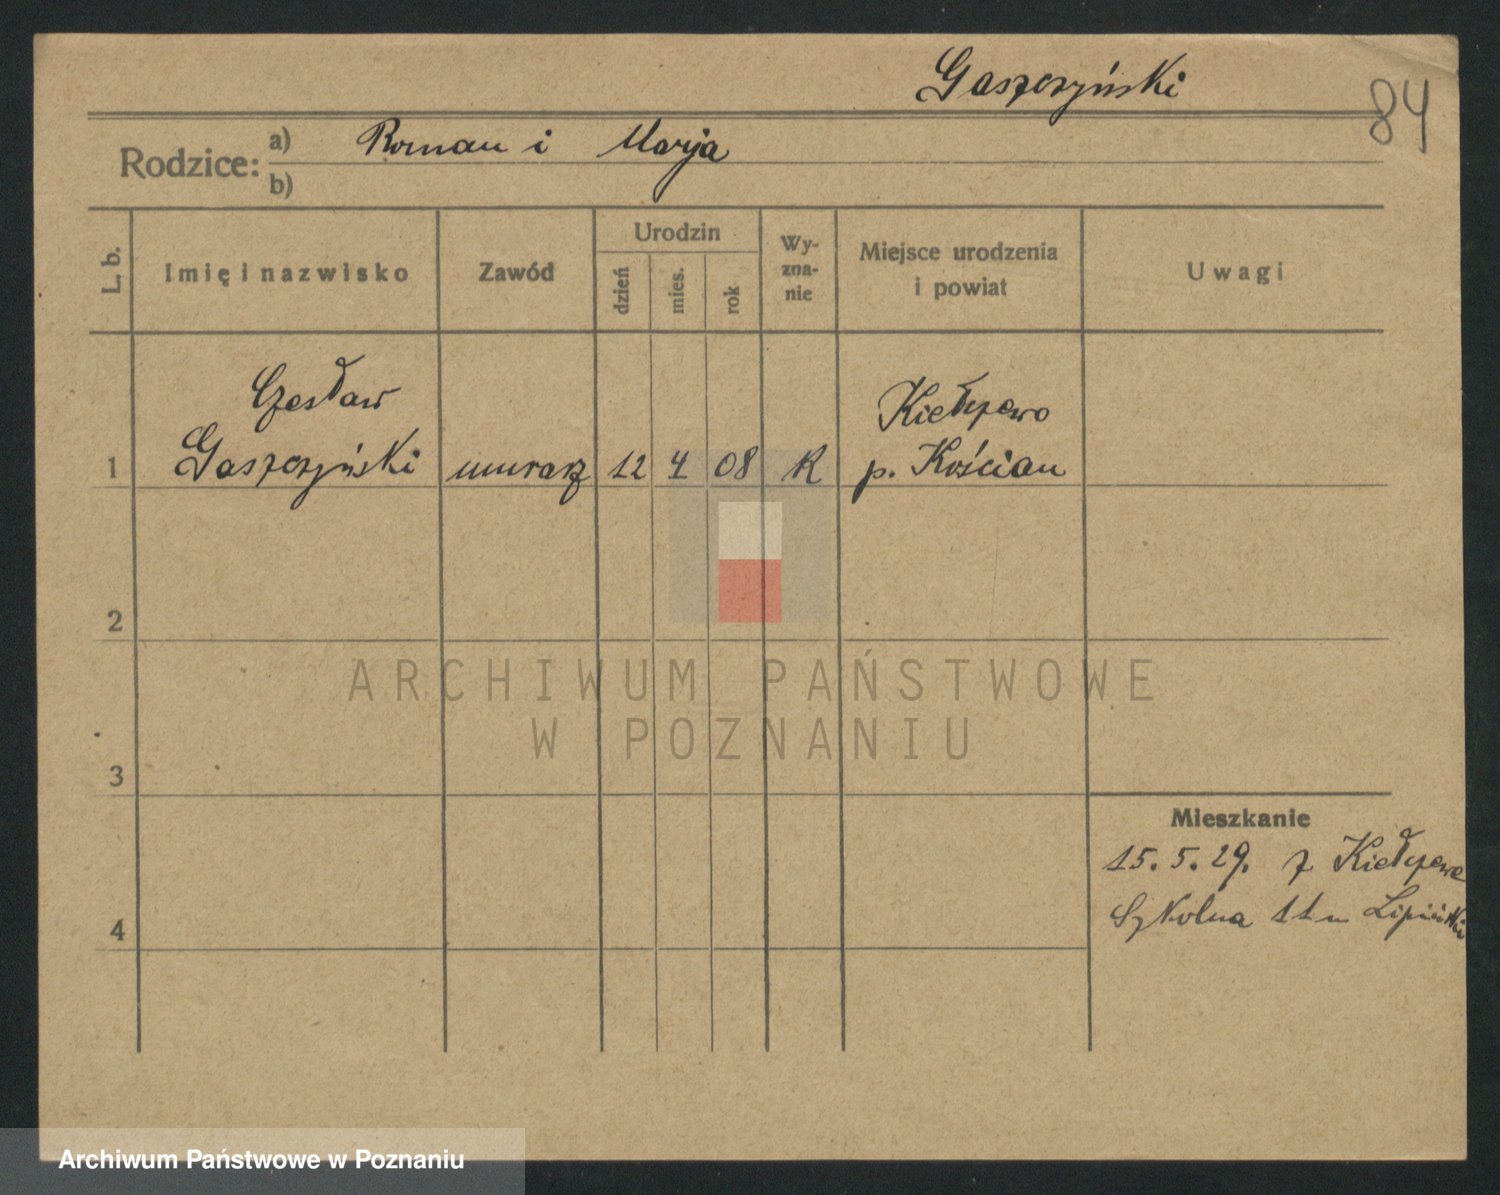 Gaszczyński
84
Rodzice: a) Roman i Marja
b)
L. b.
Imię i nazwisko
Zawód
Urodzin
dzień
mies.
rok
Wy-
zna-
nie
Miejsce urodzenia
i powiat
Uwagi
Czesław
Gaszczyński
1
murarz
12
4
08
K
Kiełczewo
p. Kościan
2
3
4
Mieszkanie
15. 5. 29. z Kiełczewa
Szkolna 11 u
ARCHIWUM PAŃSTWOWE
W POZNANIU
Archiwum Państwowe w Poznaniu